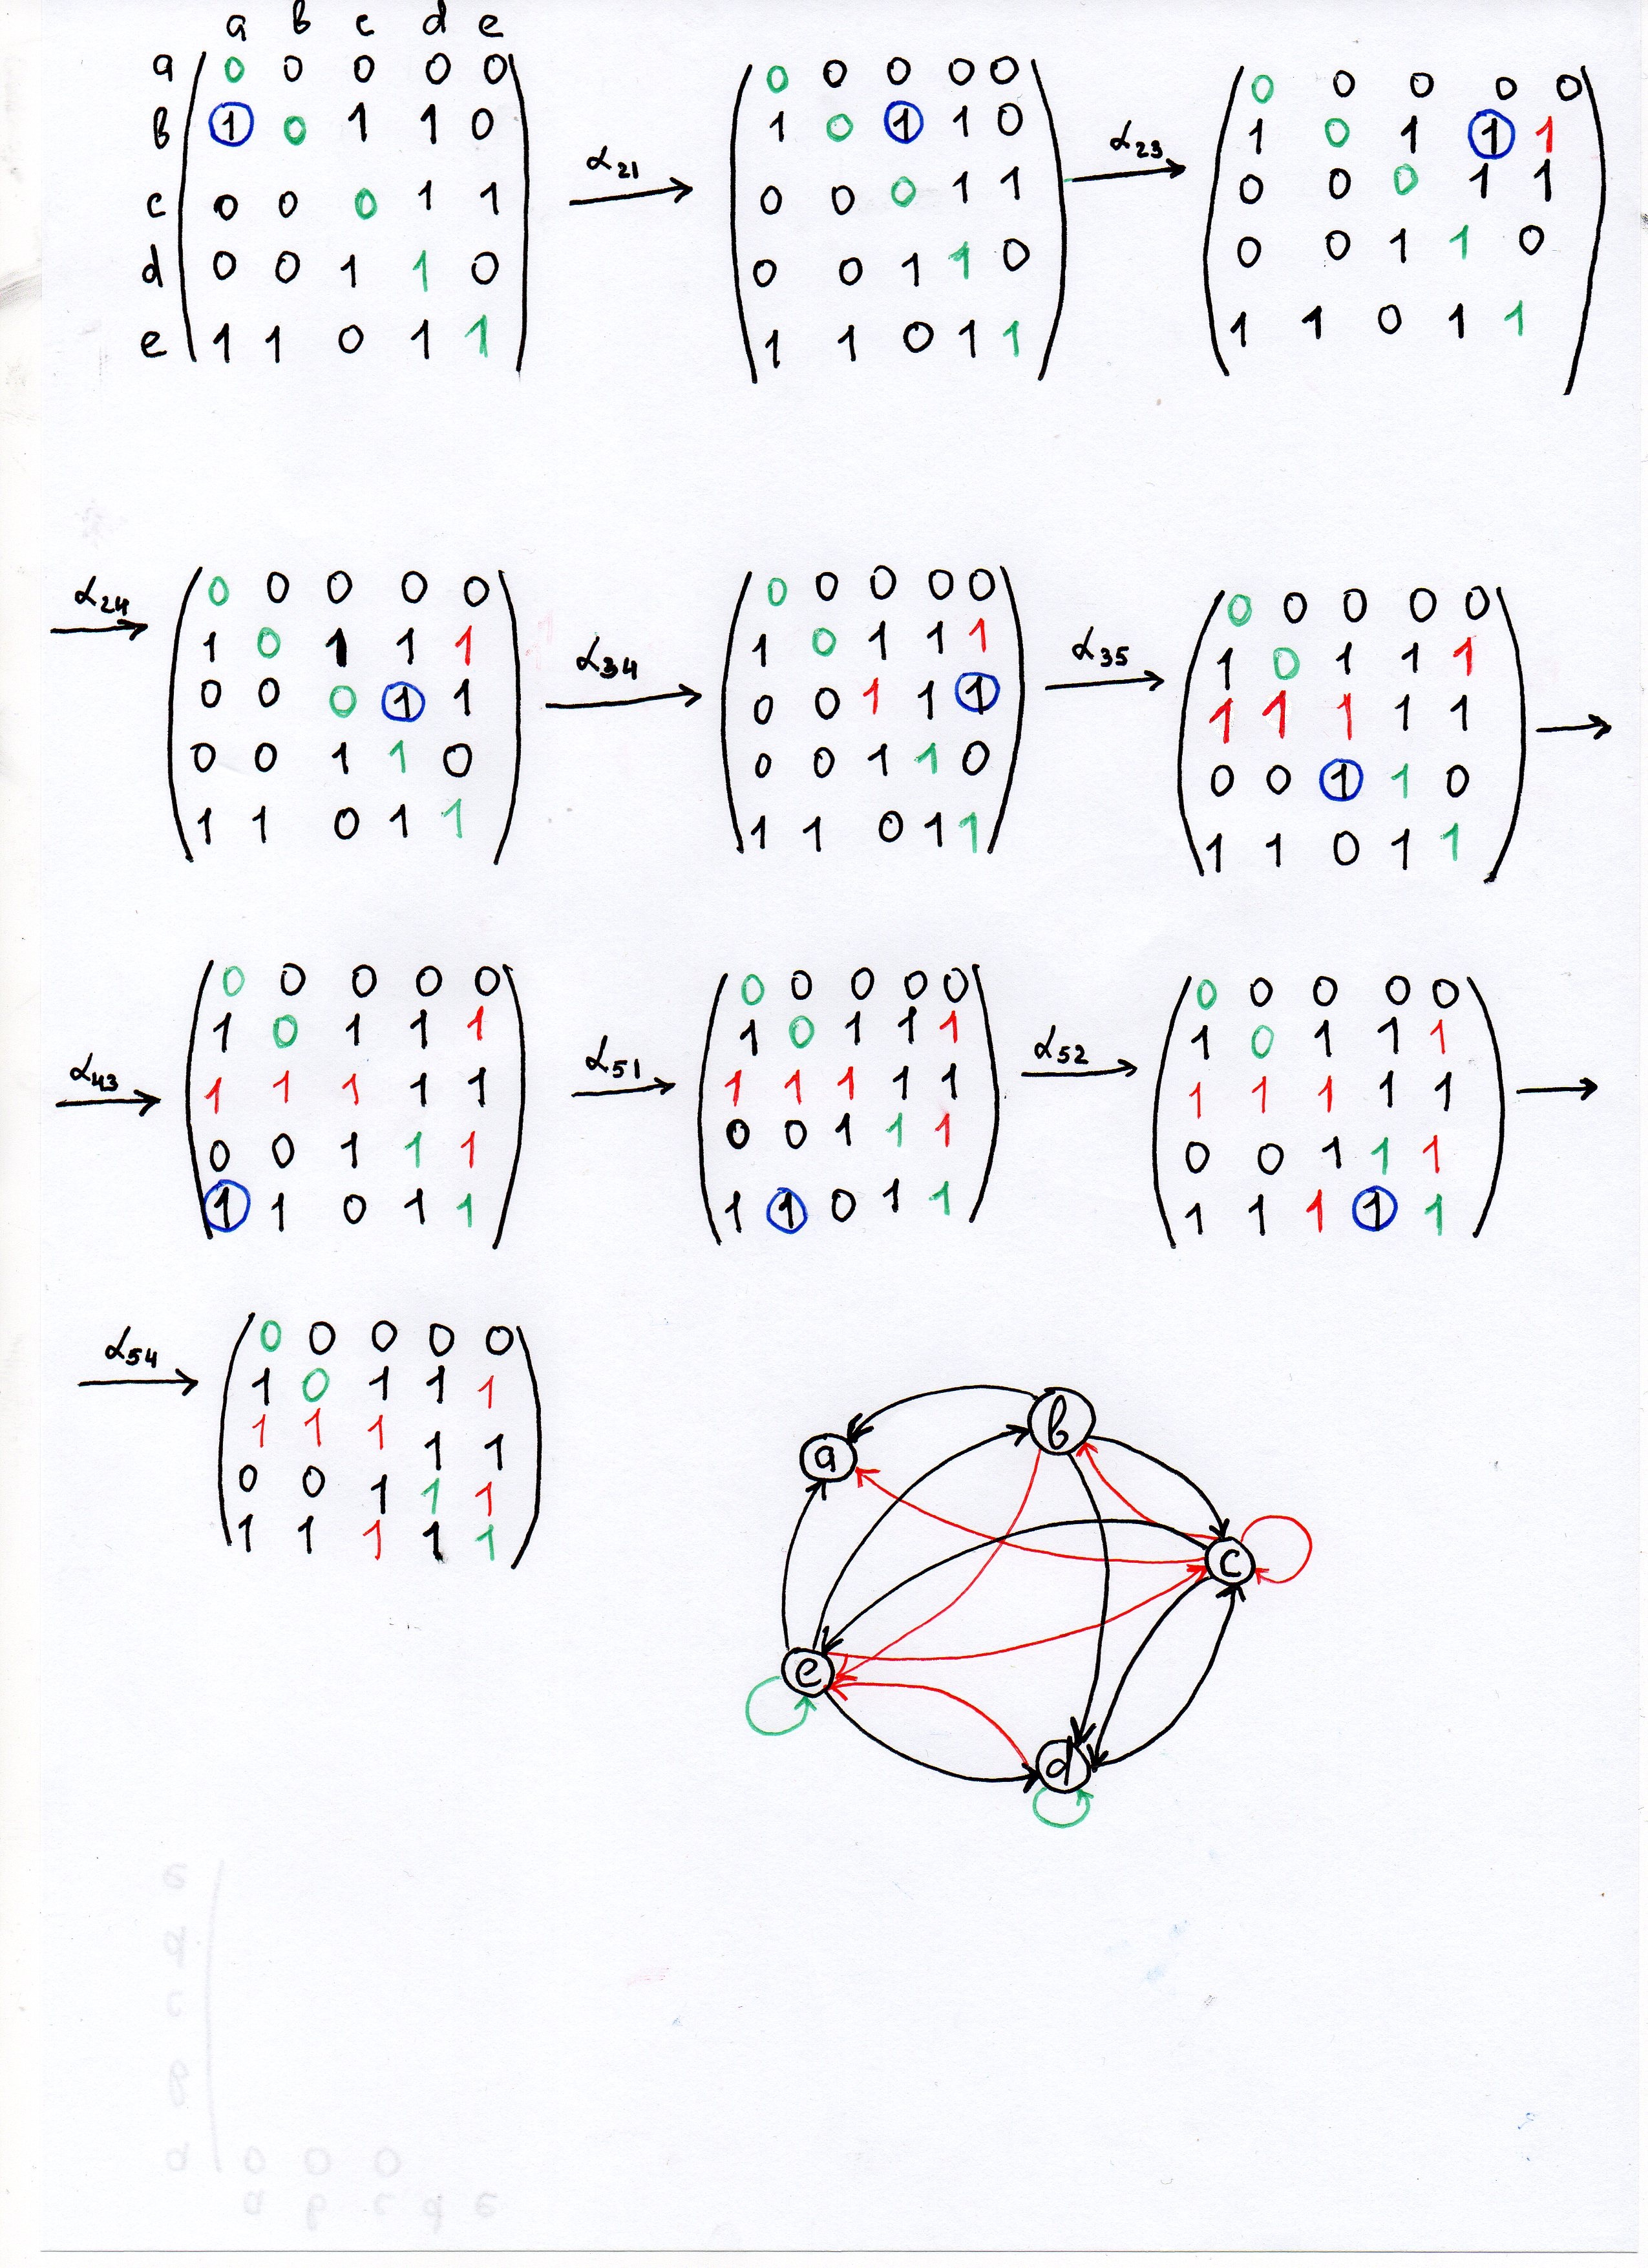 a b c d e
a 0 0 0 0 0
b 1 0 1 1 0
c 0 0 0 1 1
d 0 0 1 1 0
e 1 1 0 1 1
α21
0 0 0 0 0
1 0 1 1 0
0 0 0 1 1
0 0 1 1 0
1 1 0 1 1
α23
0 0 0 0 0
1 0 1 1 1
0 0 0 1 1
0 0 1 1 0
1 1 0 1 1
α24
0 0 0 0 0
1 0 1 1 1
0 0 0 1 1
0 0 1 1 0
1 1 0 1 1
α34
0 0 0 0 0
1 0 1 1 1
0 0 1 1 1
0 0 1 1 0
1 1 0 1 1
α35
0 0 0 0 0
1 0 1 1 1
1 1 1 1 1
0 0 1 1 0
1 1 0 1 1
α43
0 0 0 0 0
1 0 1 1 1
1 1 1 1 1
0 0 1 1 1
1 1 0 1 1
α51
0 0 0 0 0
1 0 1 1 1
1 1 1 1 1
0 0 1 1 1
1 1 0 1 1
α52
0 0 0 0 0
1 0 1 1 1
1 1 1 1 1
0 0 1 1 1
1 1 1 1 1
α54
0 0 0 0 0
1 0 1 1 1
1 1 1 1 1
0 0 1 1 1
1 1 1 1 1
b
a
c
e
d